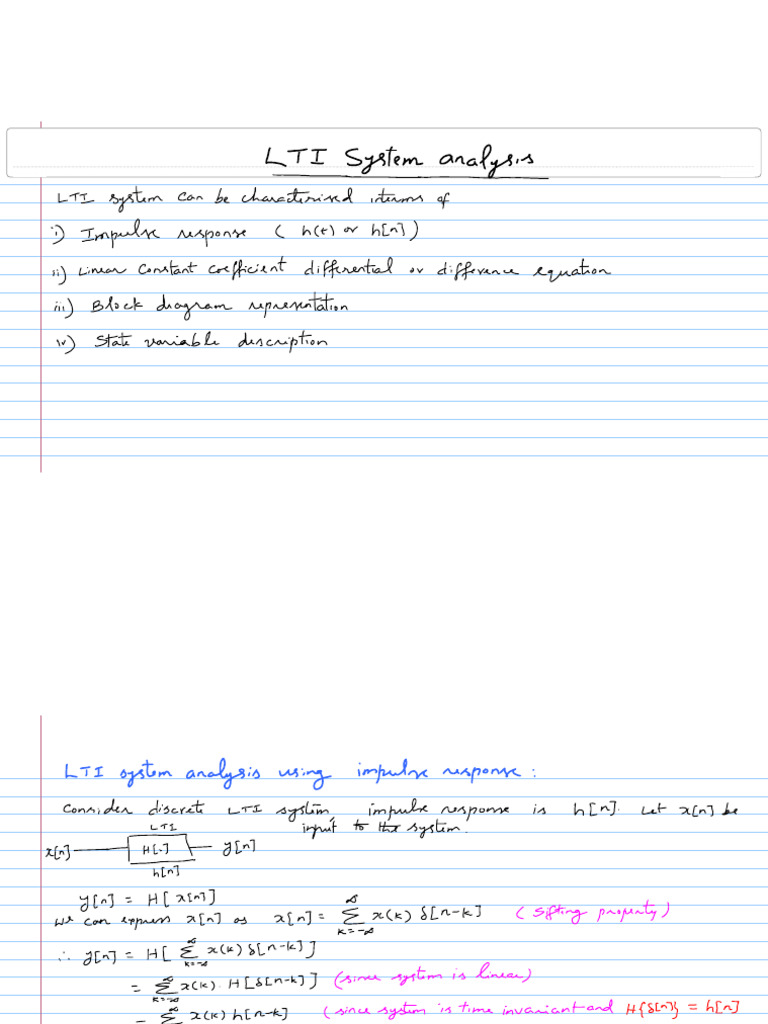 LTI System analysis
LTI system can be characterised interms of
i) Impulse response ( h(t) or h[n] )
ii) Linear constant coefficient differential or difference equation
iii) Block diagram representation
iv) State variable description
LTI system analysis using impulse response :
Consider discrete LTI system, impulse response is h[n]. Let x[n] be
input to the system.
LTI
x[n] H[.] y[n]
h[n]
y[n] = H[x[n]]
we can express x[n] as x[n] = ∞ Σ k=-∞ x(k) δ[n-k] (Sifting property)
∴ y[n] = H[ ∞ Σ k=-∞ x(k) δ[n-k] ]
= ∞ Σ k=-∞ x(k). H[δ[n-k]] (since system is linear)
= ∞ Σ x(k) h[n-k] (since system is time invariant and H{δ[n]} = h[n]